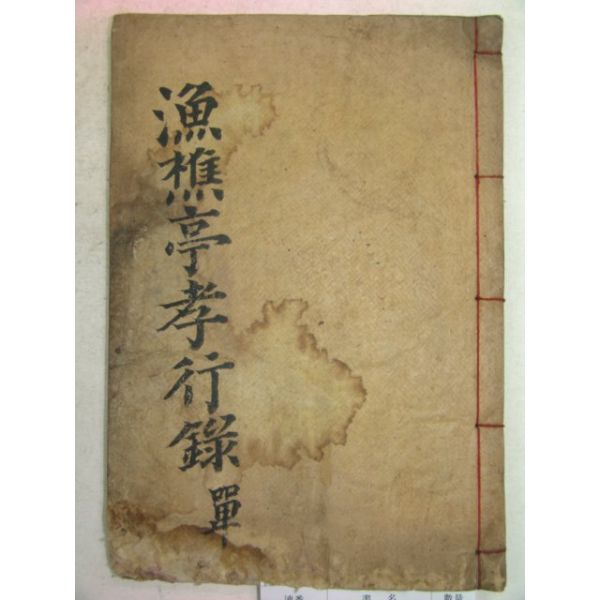 漁樵亭孝行錄
單